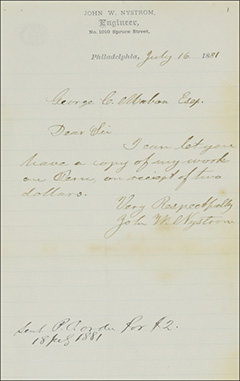 JOHN W. NYSTROM,
Engineer,
No. 1010 Spruce Street,
Philadelphia, July 16 1881
George C. Mahon Esq.
Dear Sir
I can let you
have a copy of my work
on Peru, on receipt of two
dollars.
Very Respectfully
John W. Nystrom
Sent P.O order for $2.
18 July 1881